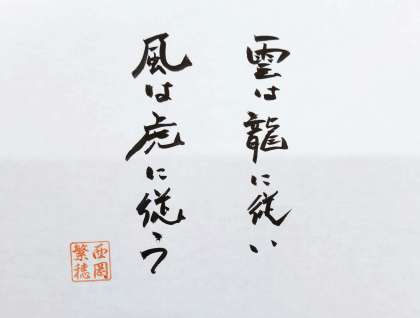 雲は龍に従い
風は虎に従う
西岡
繁穂